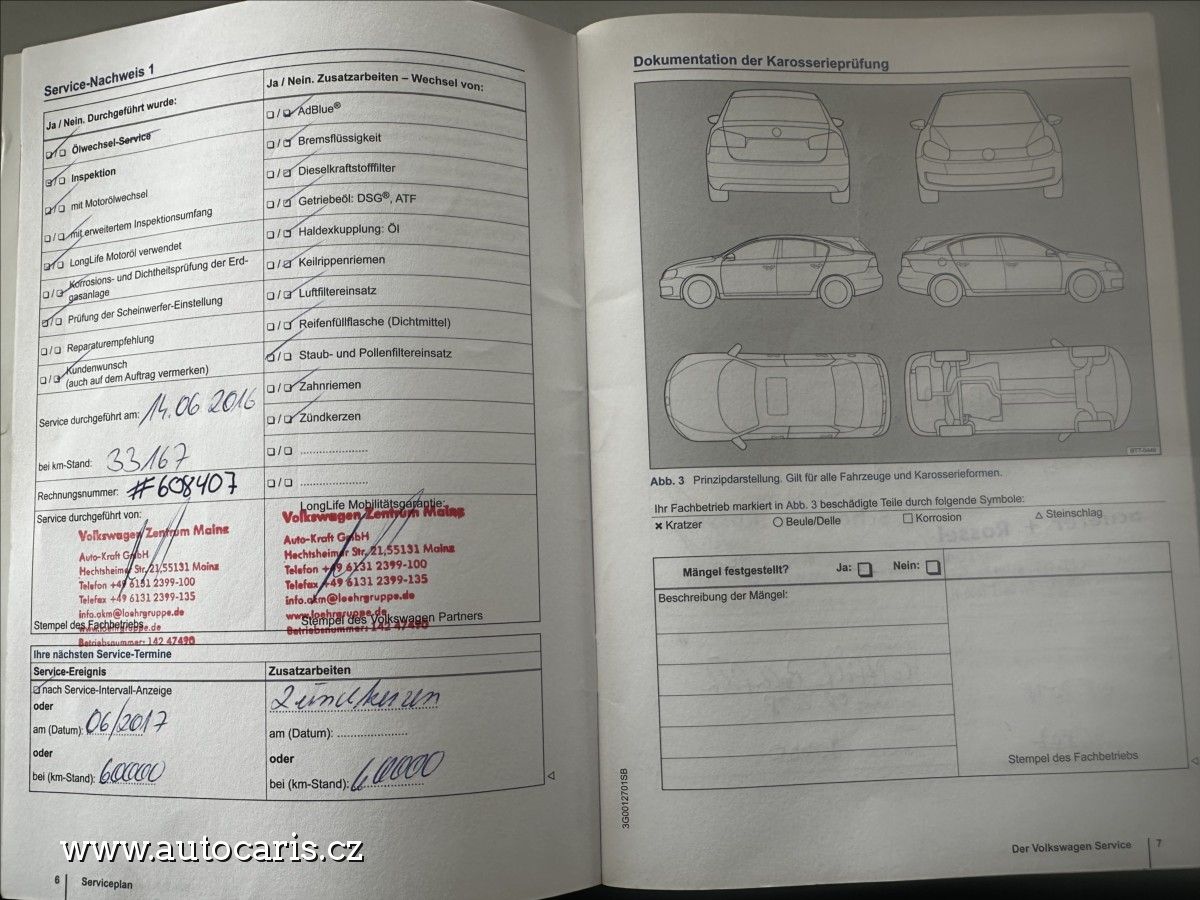 Service-Nachweis 1
Ja / Nein. Durchgeführt wurde:
Ölwechsel-Service
Inspektion
mit Motorölwechsel
mit erweitertem Inspektionsumfang
LongLife Motoröl verwendet
Korrosions- und Dichtheitsprüfung der Erd-
gasanlage
Prüfung der Scheinwerfer-Einstellung
Reparaturempfehlung
Kundenwunsch
(auch auf dem Auftrag vermerken)
Service durchgeführt am: 14.06.2016
bei km-Stand: 33167
Rechnungsnummer: #608407
Service durchgeführt von:
Volkswagen Zentrum Mainz
Auto-Kraft GmbH
Hechtsheimer Str. 21,55131 Mainz
Telefon +49 6131 2399-100
Telefax +49 6131 2399-135
info.akm@loehrgruppe.de
www.loehrgruppe.de
Stempel des Fachbetriebs
Betriebsnummer: 142 47490
Ja / Nein. Zusatzarbeiten – Wechsel von:
AdBlue®
Bremsflüssigkeit
Dieselkraftstofffilter
Getriebeöl: DSG®, ATF
Haldexkupplung: Öl
Keilrippenriemen
Luftfiltereinsatz
Reifenfüllflasche (Dichtmittel)
Staub- und Pollenfiltereinsatz
Zahnriemen
Zündkerzen
LongLife Mobilitätsgarantie:
Volkswagen Zentrum Mainz
Auto-Kraft GmbH
Hechtsheimer Str. 21,55131 Mainz
Telefon +49 6131 2399-100
Telefax +49 6131 2399-135
info.akm@loehrgruppe.de
www.loehrgruppe.de
Stempel des Volkswagen Partners
Betriebsnummer: 142 47490
Ihre nächsten Service-Termine
Service-Ereignis
nach Service-Intervall-Anzeige
oder
am (Datum): 06/2017
oder
bei (km-Stand): 60000
Zusatzarbeiten
Zündkerzen
am (Datum):
oder
bei (km-Stand): 60000
www.autocaris.cz
6 Serviceplan
Dokumentation der Karosserieprüfung
BTT-0449
Abb. 3 Prinzipdarstellung. Gilt für alle Fahrzeuge und Karosserieformen.
Ihr Fachbetrieb markiert in Abb. 3 beschädigte Teile durch folgende Symbole:
× Kratzer ○ Beule/Delle □ Korrosion △ Steinschlag
Mängel festgestellt? Ja: Nein:
Beschreibung der Mängel:
Stempel des Fachbetriebs
3G0012701SB
Der Volkswagen Service 7